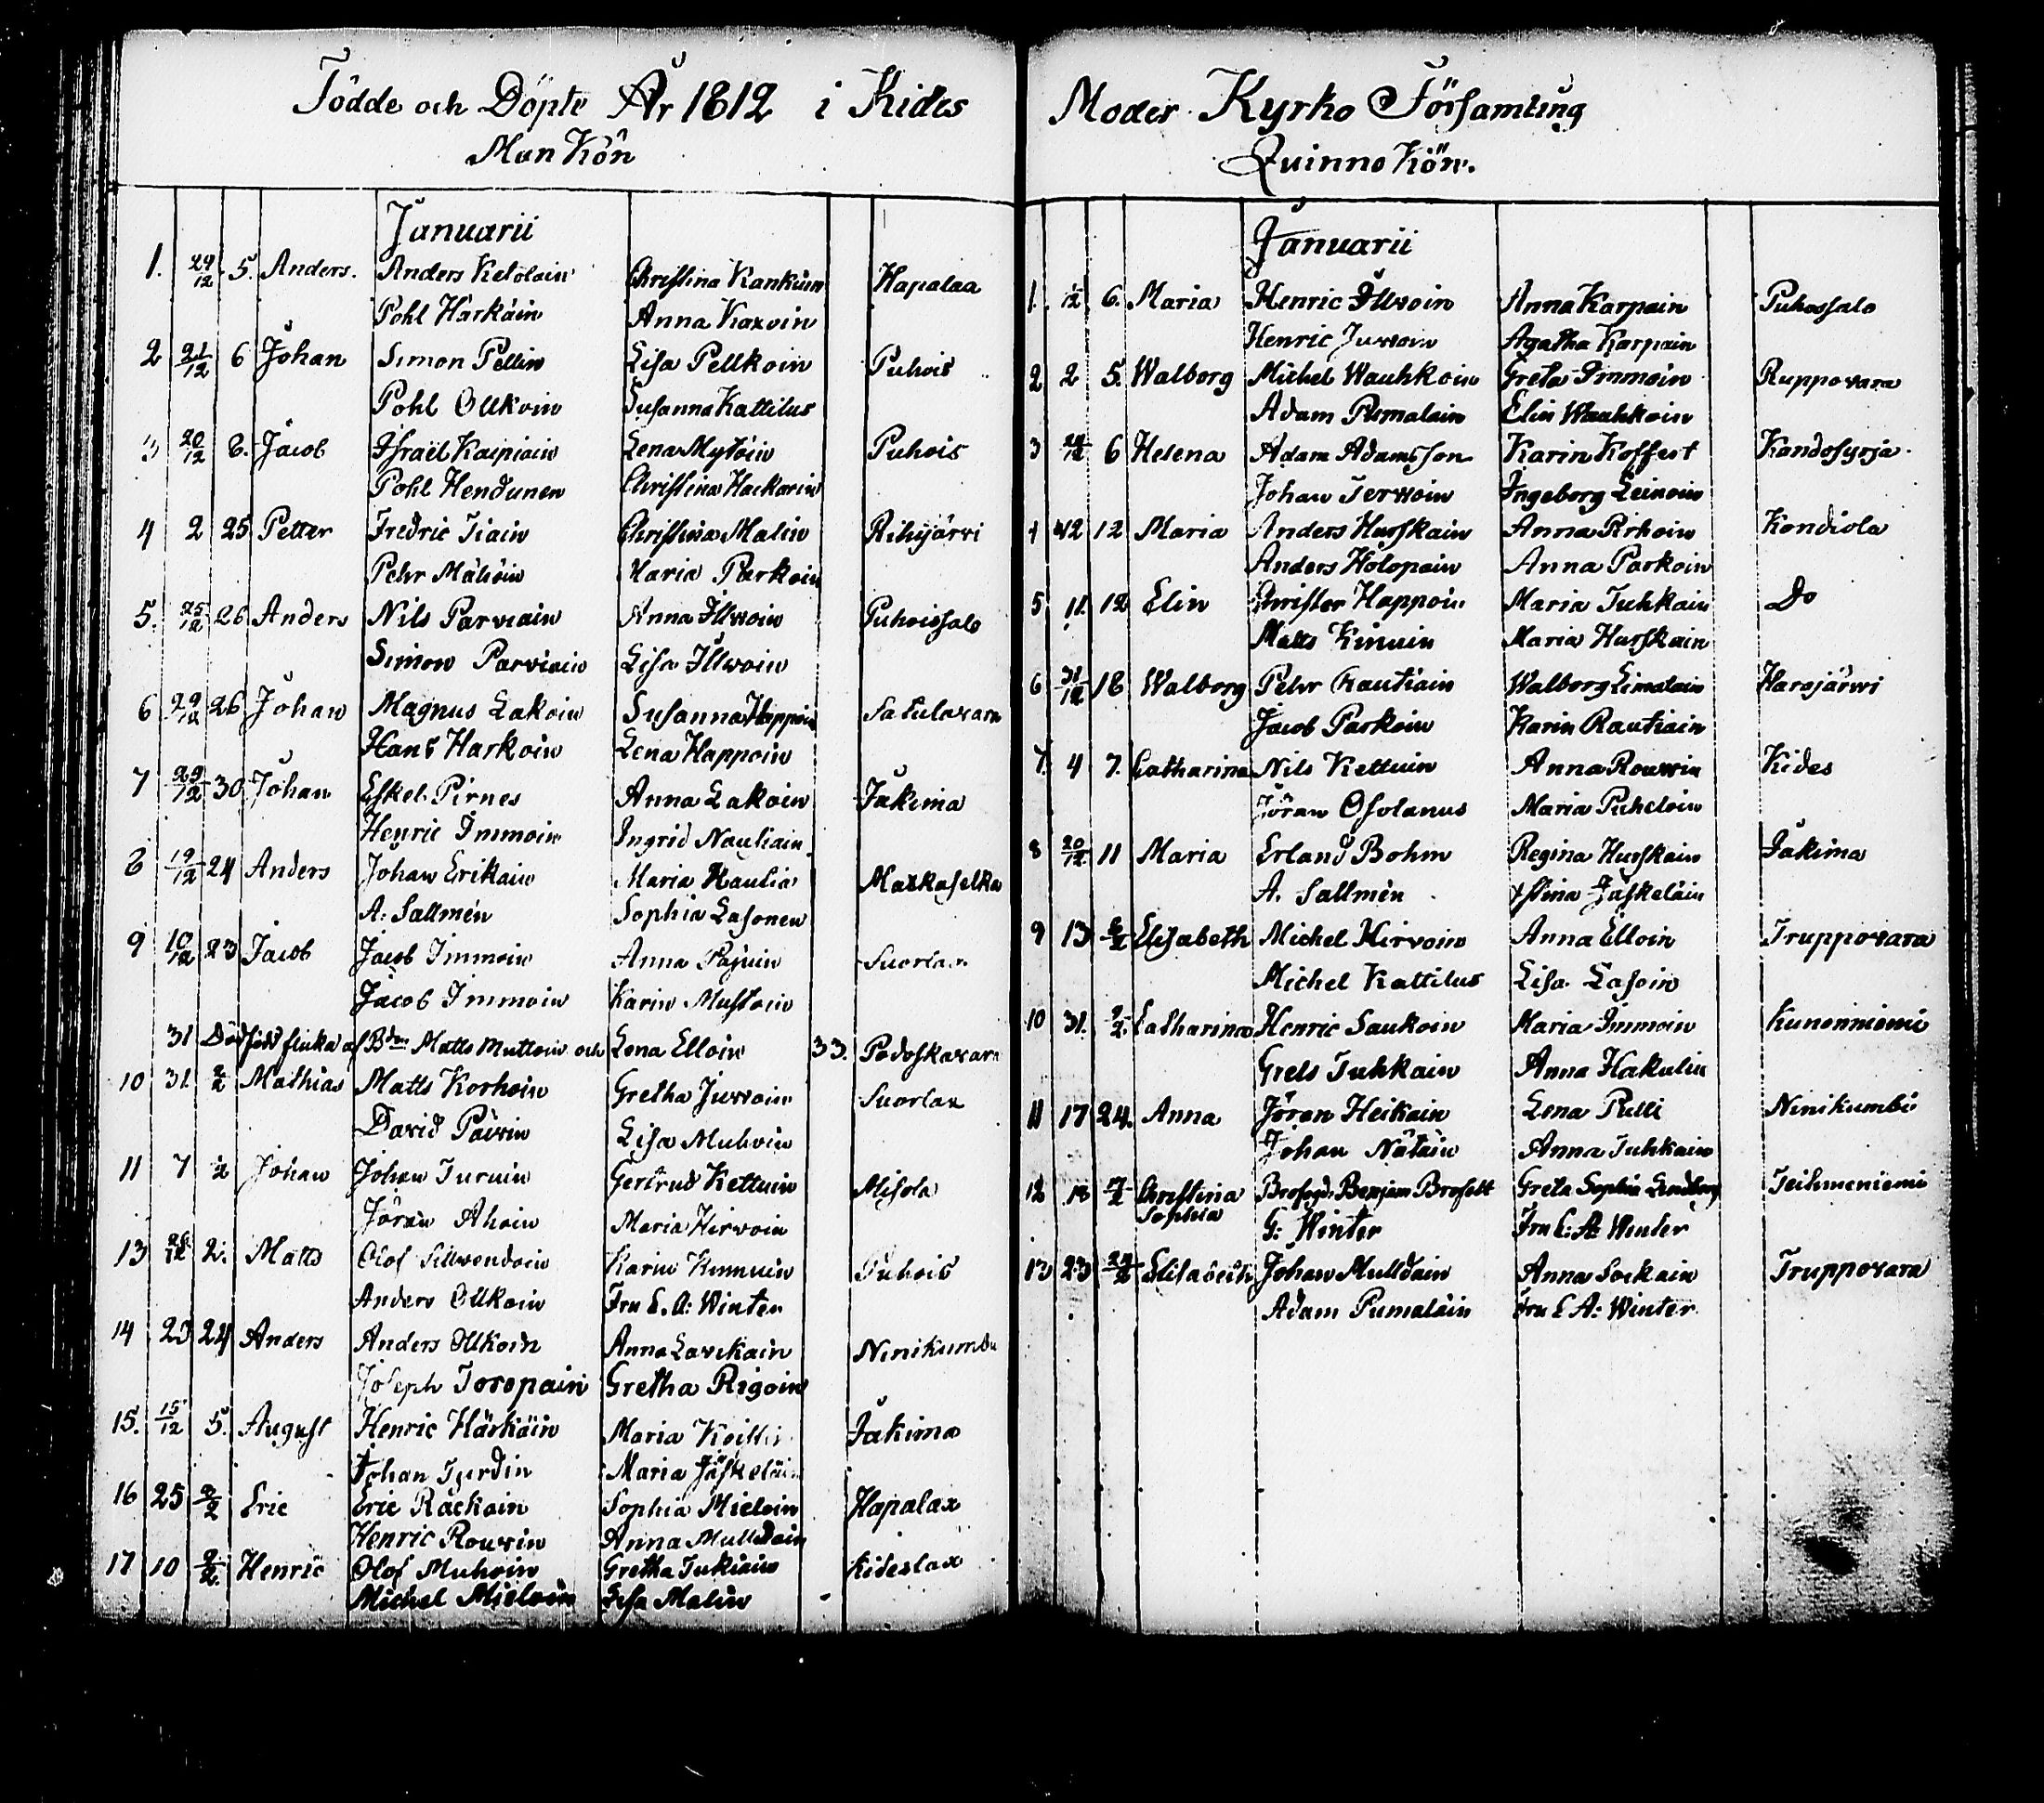 Födde och Döpte År 1812 i Kides
Man Kön
Januarii
1. 29/12 5. Anders. Anders Ketolain Christina Kankiin Hapalax
Pohl Härkäin Anna Karvin
2 21/12 6 Johan Simon Pellin Lisa Pellkoin Puhois
Pohl Ollkoin Susanna Kattilus
3 20/12 6. Jacob Israël Karpiain Lena Mytöin Puhois
Pohl Hendunen Christina Hackarin
4 2 25 Petter Fredric Tiain Christina Malin Rihijärvi
Pehr Mähöin Maria Parkoin
5. 25/12 26 Anders Nils Parviain Anna Illvoin Puhoissalo
Simon Parviain Lisa Illvoin
6 29/12 26 Johan Magnus Lakoin Susanna Happoin Satulavara
Hans Harkoin Lena Happoin
7 29/12 30 Johan Eskel Pirnes Anna Lakoin Jakima
Henric Immoin Ingrid Nauliain
8 19/12 24 Anders Johan Erikain Maria Rautia Maxkaselka
A. Sallmén Sophia Lasonen
9 10/12 23 Jacob Jacob Immoin Anna Päjuin Suorlax
Jacob Immoin Karin Mustoin
31 Död född flicka af Bdn Matts Muttoin och Lena Elloin 33. Podoskavara
10 31. 2/2 Mathias Matts Korhoin Gretha Jusvoin Suorlax
David Päivin Lisa Muhoin
11 7 2 Johan Johan Turuin Gertrud Kettuin Misola
Jöran Ahoin Maria Hirvoin
13 28/12 2. Matts Olof Sillvendoin Karin Kinnuin Puhois
Anders Ollkoin Fru E. A: Winter
14 23 24 Anders Anders Ollkoin Anna Lavikain Ninikumbu
Joseph Toropain Gretha Rigoin
15. 15/12 5. August Henric Härkäin Maria Jakima
Johan Tjurdin Maria Jäskeläin
16 25 2/2 Eric Eric Räckoin Sophia Mieloin Hapalax
Henric Rouvin Anna Mulldain
17 10 2/2. Henric Olof Muhoin Gretha Tukiain Kideslax
Michel Mieloin Lisa Malin
Moder Kyrko Församling
Quinno Kön.
Januarii
1. 1/12 6. Maria Henric Illvoin Anna Karpain Puhossalo
Henric Jusvoin Agatha Karpain
2 2 5. Walborg Michel Wauhkoin Greta Immoin Ruppovara
Adam Pumalain Elin Wauhkoin
3 24/12 6 Helena Adam Adamsson Karin Koffert Kandosyrja
Johan Tervoin Ingeborg Leinoin
4 12 Maria Anders Hurskain Anna Pirhoin Kondiola
Anders Holopain Anna Parkoin
5 11. 12 Elin Christer Happoin Maria Tuhkain Do
Matts Kinnuin Maria Hurskain
6 31/12 18 Walborg Pehr Rautiain Walborg Limatain Harojärwi
Jacob Parkoin Karin Rautiain
7. 4 7. Catharina Nils Kettuin Anna Rouvin Kides
Jöran Osolanus Maria Puheloin
8 20/12 11 Maria Erland Bohm Regina Hurskain Jakima
A. Sallmén Xstina Jäskeläin
9 13 6/2 Elisabeth Michel Hirvoin Anna Elloin Truppovara
Michel Kattilus Lisa Lasoin
10 31. 2/2. Catharina Henric Saukoin Maria Immoin Kunonniemi
Grels Tuhkain Anna Hakulin
11 17 24. Anna Jöran Heikain Lena Pulli Ninikumbu
Johan Nätäin Anna Tuhkain
12 18 2/2 Christina Sophia Benjam Brofelt Greta Sophia Lindberg Teihmeniemi
G: Winter Fru E: A: Winter
13 23 24/2 Elisabeth Johan Mulldain Anna Sorkain Truppovara
Adam Pumalain Fru E A: Winter